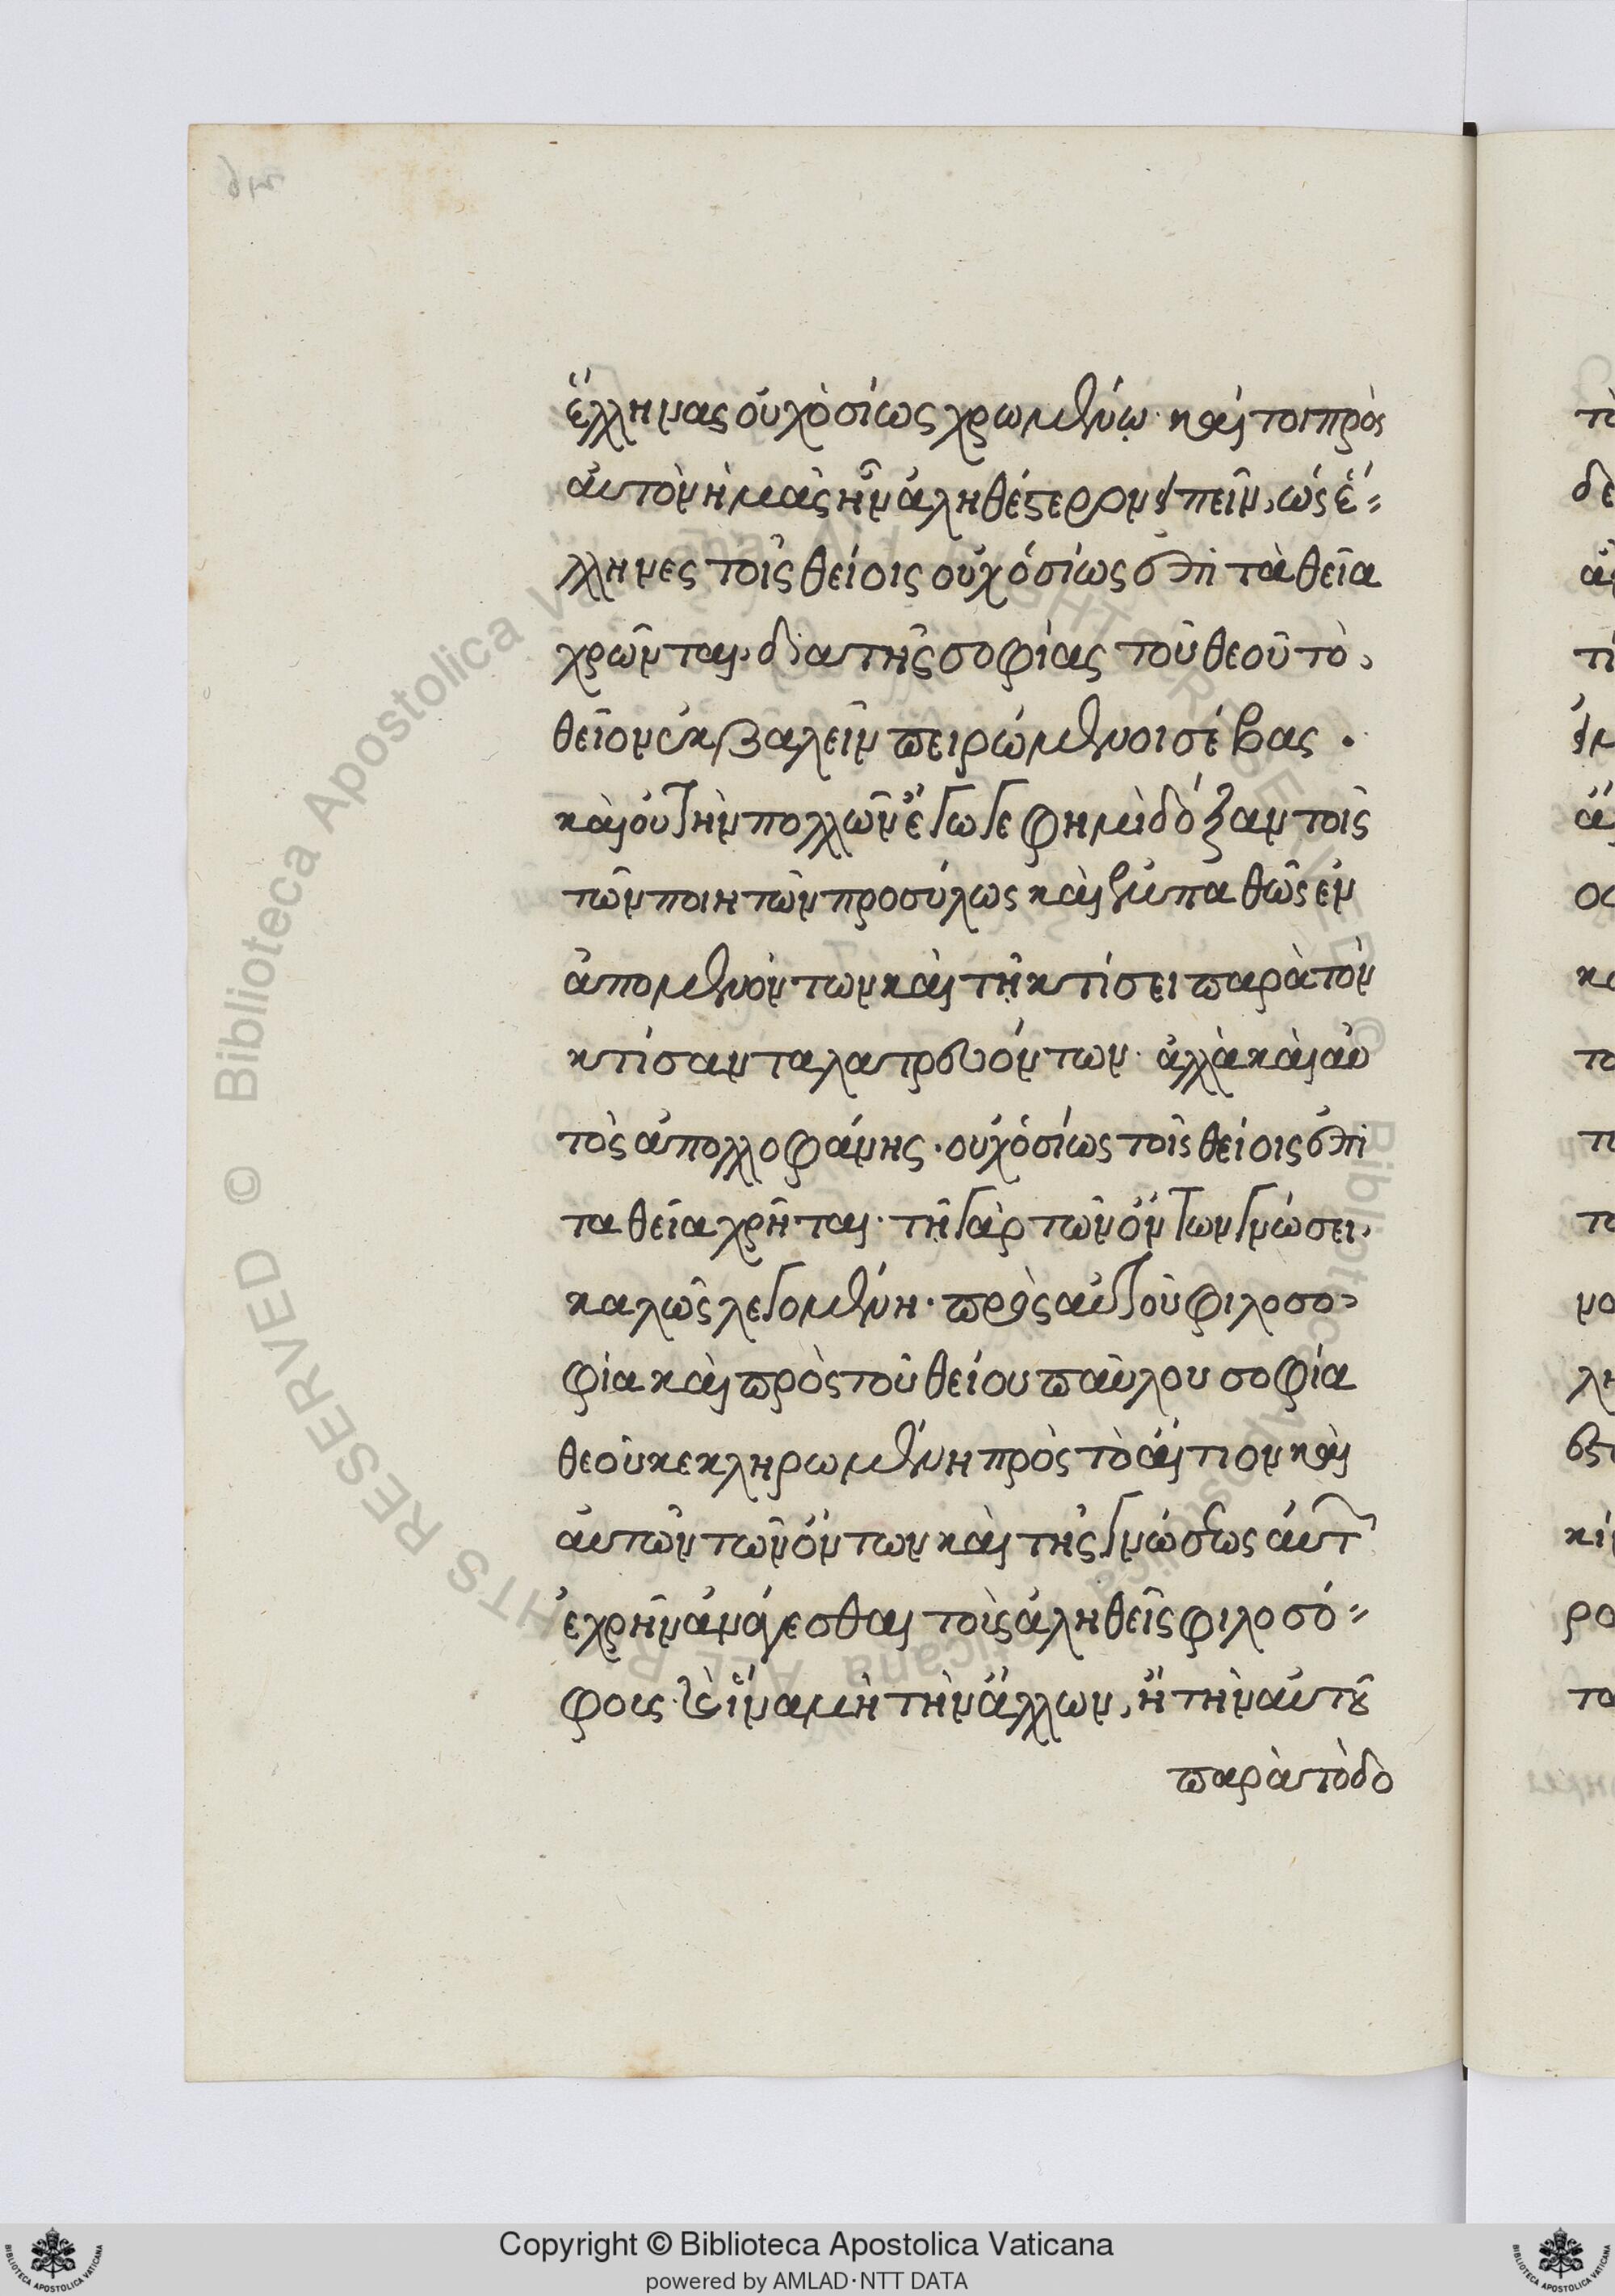 ἕλληνας οὐχ ὁσίως χρωμένῳ· καίτοι πρὸς
αὐτὸν ἡμᾶς ἦν ἀληθέστερον εἰπεῖν, ὡς ἕ-
λληνες τοῖς θείοις οὐχ ὁσίως ἐπὶ τὰ θεῖα
χρῶνται, διὰ τῆς σοφίας τοῦ θεοῦ τὸ,
θεῖον ἐκβαλεῖν πειρώμενοι σέβας.
καὶ οὐ τὴν πολλῶν ἔγωγε φημὶ δόξαν τοῖς
τῶν ποιητῶν προσύλως καὶ ἐμπαθῶς ἐν
ἀπομενόντων καὶ τῇ κτίσει παρὰ τὸν
κτίσαντα λατρευόντων· ἀλλὰ καὶ αὐ
τὸς ἀπολλοφάνης· οὐχ ὁσίως τοῖς θείοις ἐπὶ
τα θεῖα χρῆται· τῇ γὰρ τῶν ὄντων γνώσει,
καλῶς λεγομένη· πρὸς αὐτοῦ φιλοσο-
φία καὶ πρὸς τοῦ θείου παύλου σοφία
θεοῦ κεκληρωμένη πρὸς τὸ αἴτιον καὶ
αὐτῶν τῶν ὄντων καὶ τῆς γνώσεως αὐτ
ἐχρῆν ἀνάγεσθαι τοὺς ἀληθεῖς φιλοσό-
φους· καὶ ἵνα μὴ τὴν ἄλλων, ἢ τὴν αὐτοῦ
παρὰ τὸ δο
Copyright © Biblioteca Apostolica Vaticana
powered by AMLAD·NTT DATA